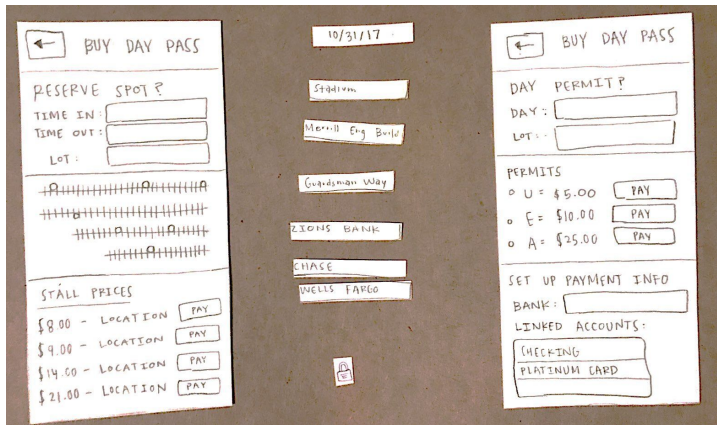 BUY DAY PASS
RESERVE SPOT?
TIME IN:
TIME OUT:
LOT:
STALL PRICES
$8.00 - LOCATION PAY
$9.00 - LOCATION PAY
$14.00 - LOCATION PAY
$21.00 - LOCATION PAY
10/31/17
Stadium
Merrill Eng Build
Guardsman Way
ZIONS BANK
CHASE
WELLS FARGO
BUY DAY PASS
DAY PERMIT?
DAY:
LOT:-
PERMITS
U = $5.00 PAY
E = $10.00 PAY
A = $25.00 PAY
SET UP PAYMENT INFO
BANK:
LINKED ACCOUNTS:
CHECKING
PLATINUM CARD